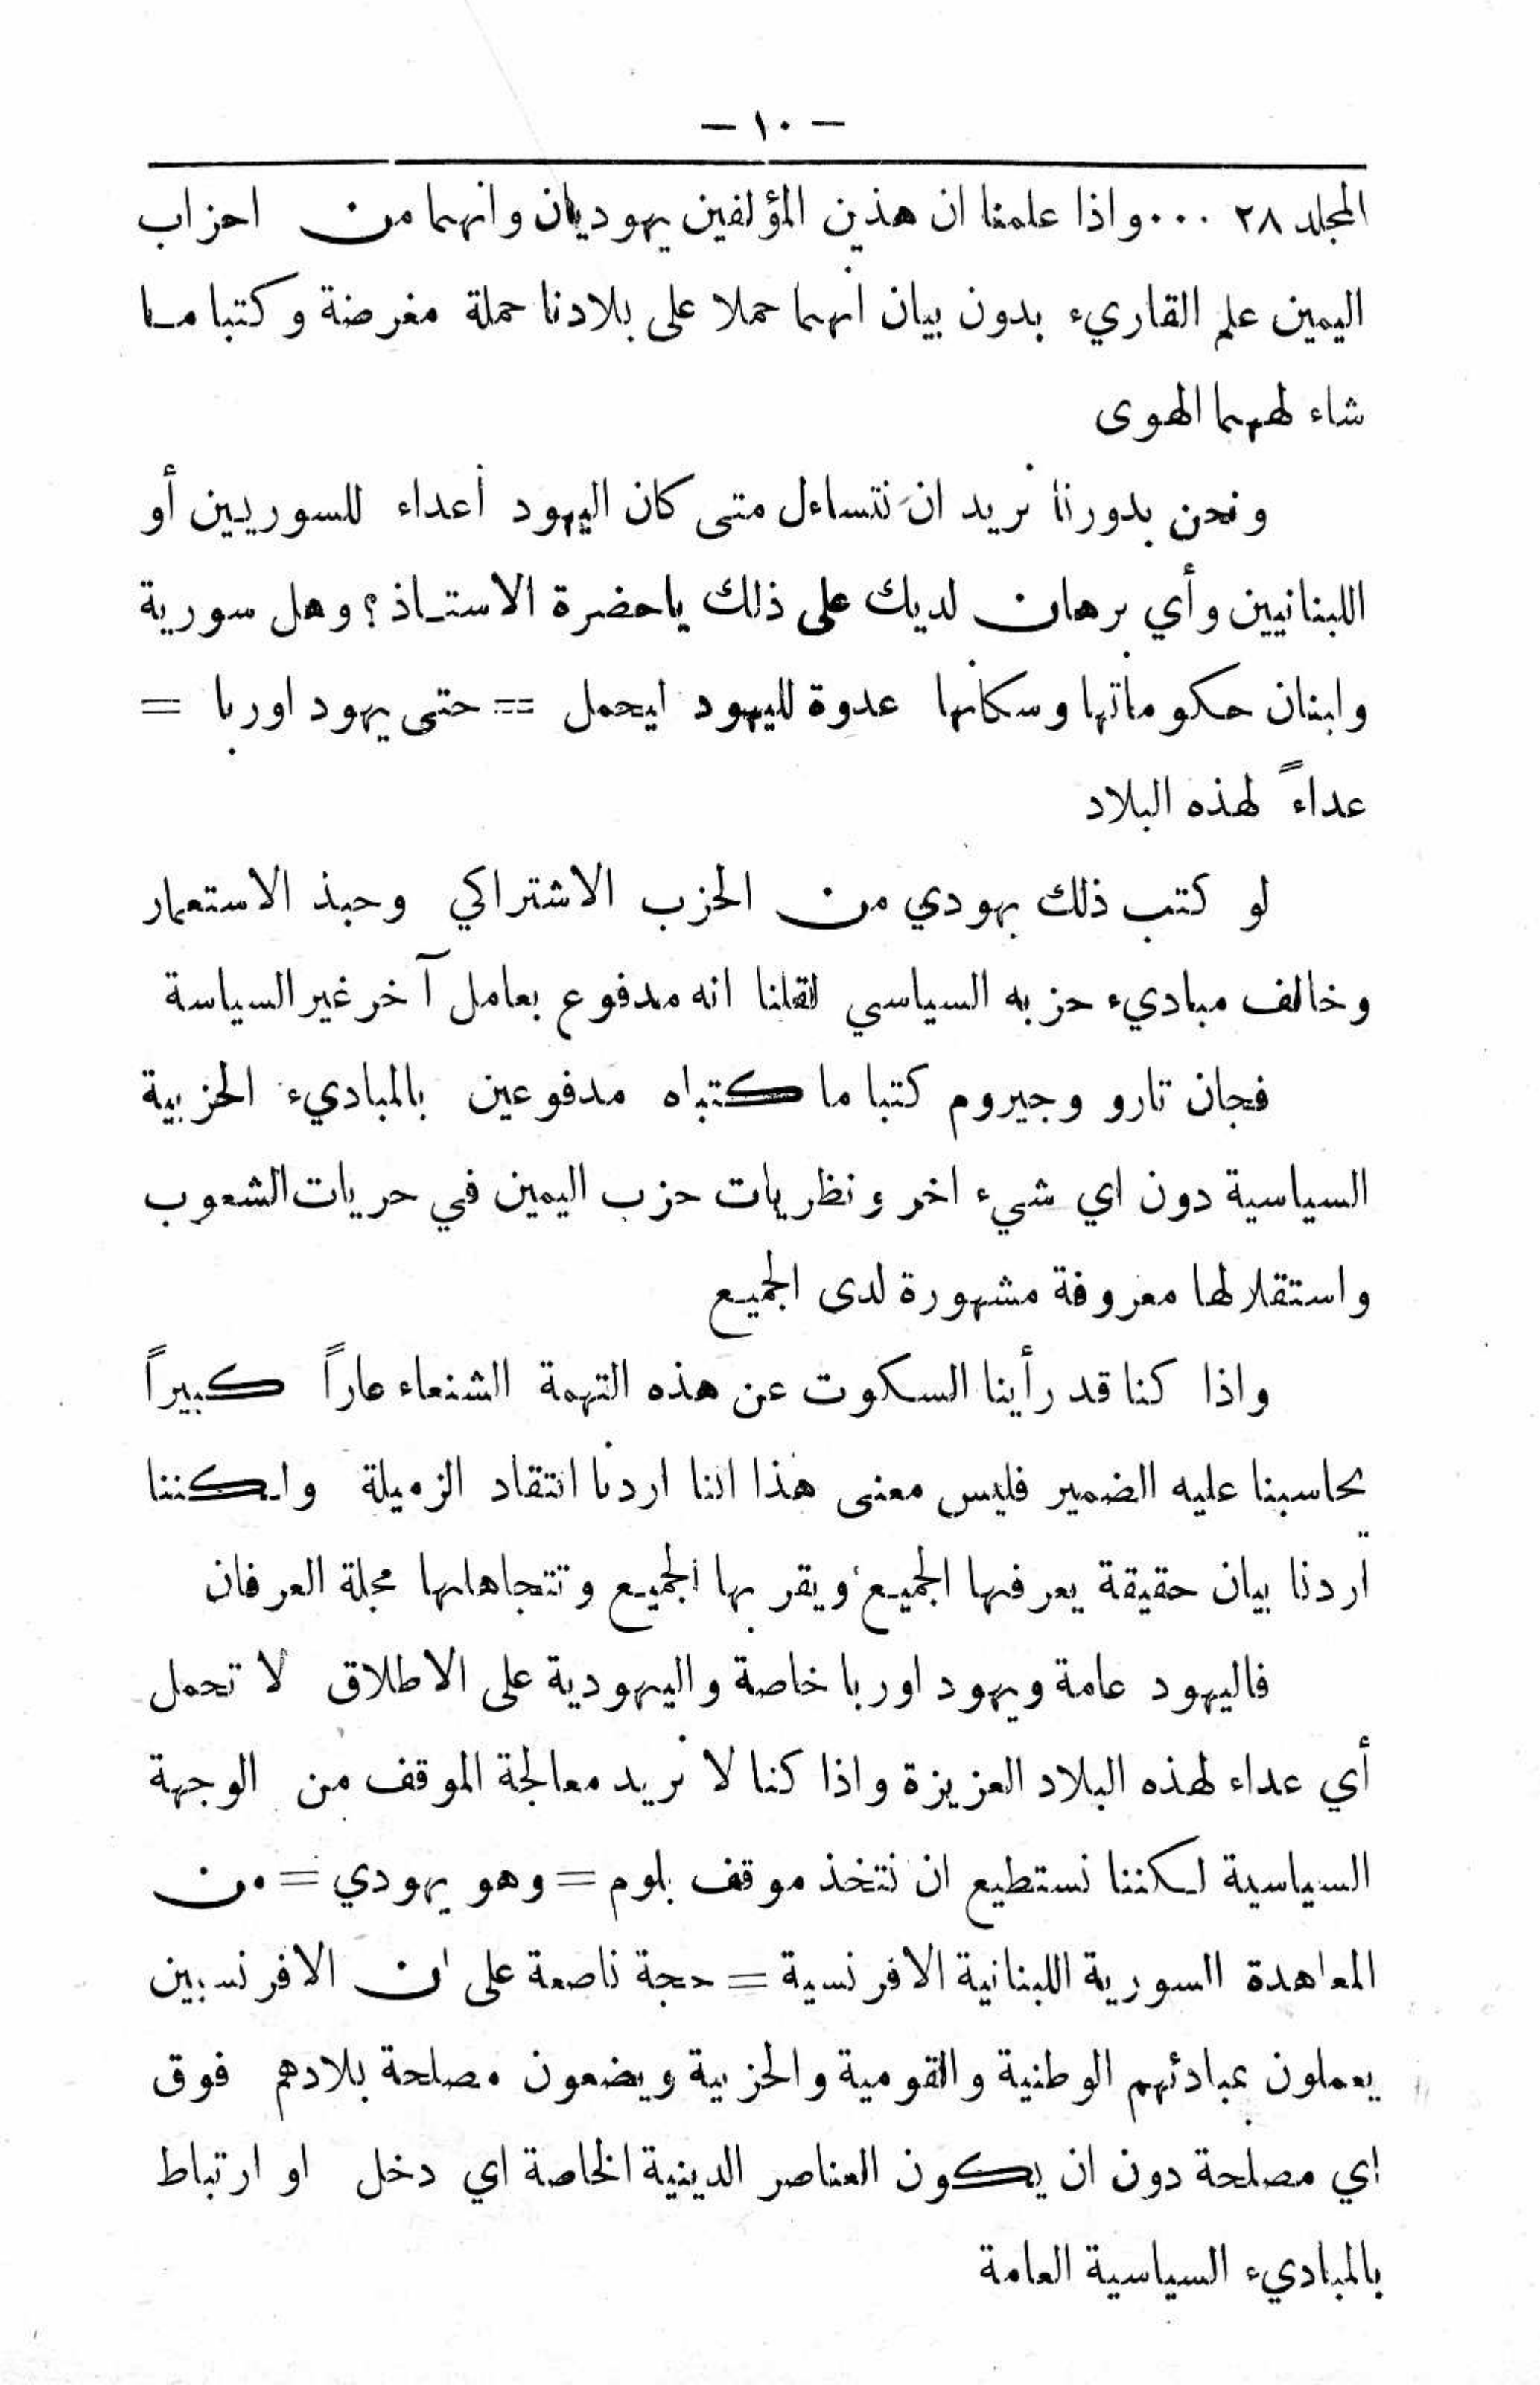 — ١٠ —
المجلد ٢٨ ٠٠٠ واذا علمنا ان هذين المؤلفين يهوديان وانهما من احزاب
اليمين علم القاريء بدون بيان انهما حملا على بلادنا حملة مغرضة وكتبا ما
شاء لهما الهوى
ونحن بدورنا نريد ان نتساءل متى كان اليهود أعداء للسوريين أو
اللبنانيين وأي برهان لديك على ذلك ياحضرة الاستاذ؟ وهل سورية
ولبنان حكوماتها وسكانها عدوة لليهود ليحمل == حتى يهود اوربا =
عداءً لهذه البلاد
لو كتب ذلك يهودي من الحزب الاشتراكي وحبذ الاستعمار
وخالف مباديء حزبه السياسي لقلنا انه مدفوع بعامل آخر غير السياسة
فجان تارو وجيروم كتبا ما كتباه مدفوعين بالمباديء الحزبية
السياسية دون اي شيء اخر ونظريات حزب اليمين في حريات الشعوب
واستقلالها معروفة مشهورة لدى الجميع
واذا كنا قد رأينا السكوت عن هذه التهمة الشنعاء عاراً كبيراً
يحاسبنا عليه الضمير فليس معنى هذا اننا اردنا انتقاد الزميلة ولكننا
اردنا بيان حقيقة يعرفها الجميع ويقر بها الجميع وتتجاهلها مجلة العرفان
فاليهود عامة ويهود اوربا خاصة واليهودية على الاطلاق لا تحمل
أي عداء لهذه البلاد العزيزة واذا كنا لا نريد معالجة الموقف من الوجهة
السياسية لكننا نستطيع ان نتخذ موقف بلوم = وهو يهودي = من
المعاهدة السورية اللبنانية الافرنسية = حجة ناصعة على ان الافرنسيين
يعملون بمبادئهم الوطنية والقومية والحزبية ويضعون مصلحة بلادهم فوق
اي مصلحة دون ان يكون العناصر الدينية الخاصة اي دخل او ارتباط
بالمباديء السياسية العامة